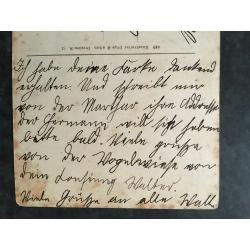 Ich habe deine Karte dankend
erhalten. Und schreibt mir
von der Marthar ihre Addresse
der Hermann will sich haben
bitte bald. Viele grüße
von der Vogelwiese von
dem
Viele Grüße an alle Wall